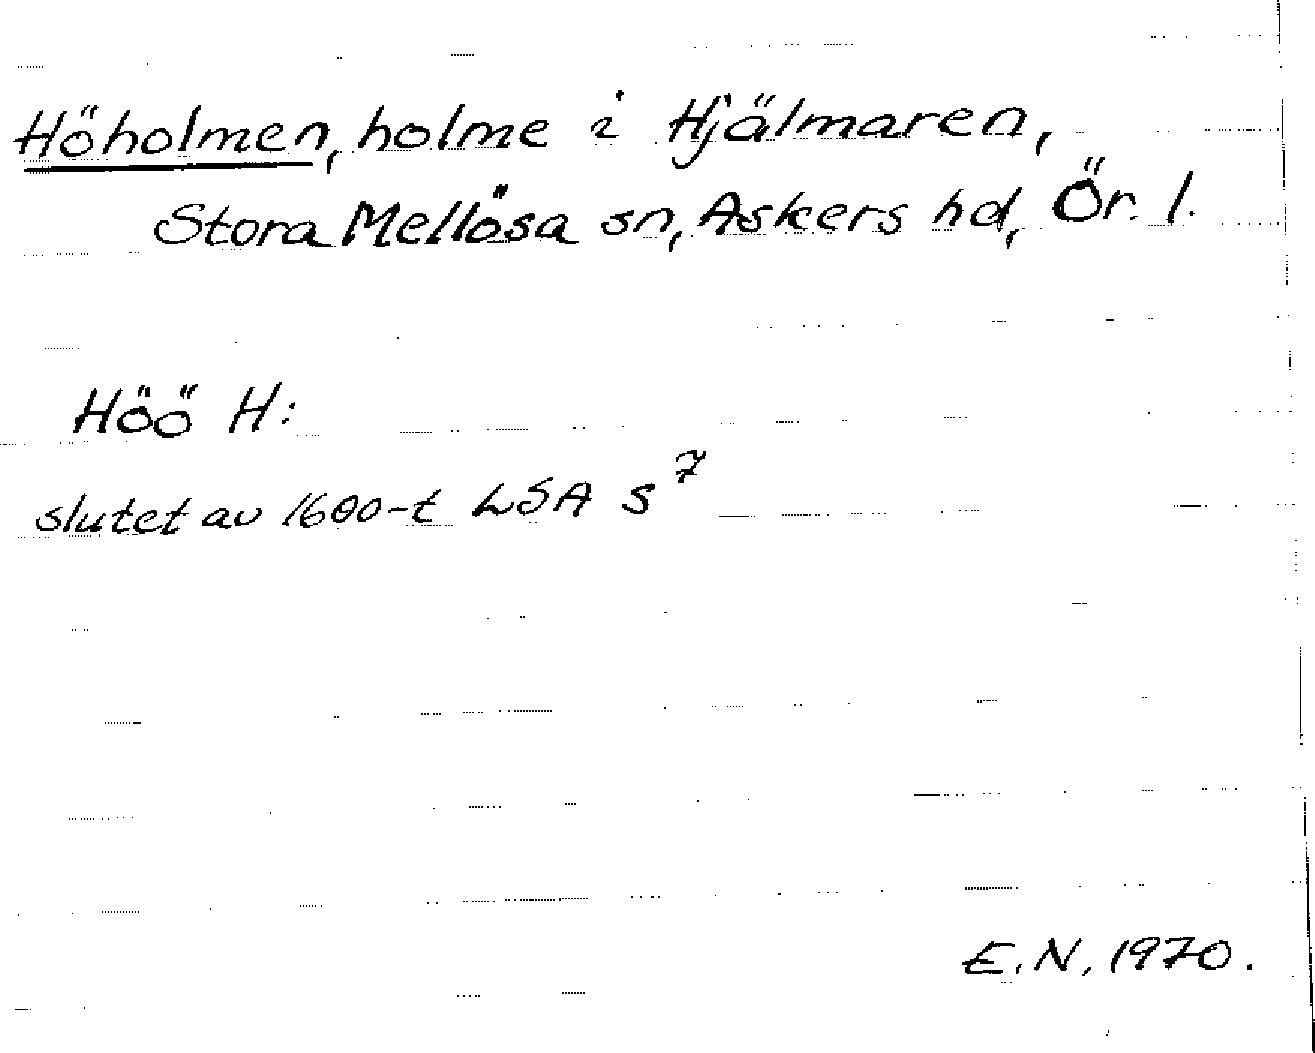 Höholmen, holme i Hjälmaren,
Stora Mellösa sn, Askers hd, Ör. l.
Höö H:
slutet av 1600-t LSA S⁷
E.N. 1970.